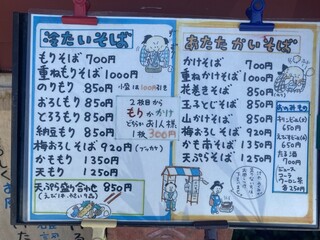 冷たいそば
もりそば 700円
重ねもりそば 1000円
のりもり 850円
小盛は100円引き
おろしもり 850円
とろろもり 850円
納豆もり 850円
梅おろしそば 920円 (ブッカケ)
かももり 1350円
天もり 1250円
天ぷら盛り合わせ 850円
2枚目から
もりかかけ
どちらかお1人様
1枚 300円
あたたかいそば
かけそば 700円
重ねかけそば 1000円
花巻そば 850円
玉子とじそば 850円
山かけそば 850円
梅おろしそば 920円
かも南そば 1350円
天ぷらそば 1250円
おつまみもの
650円
650円
700円
ジュース
コーラ
ウーロン茶
各250円